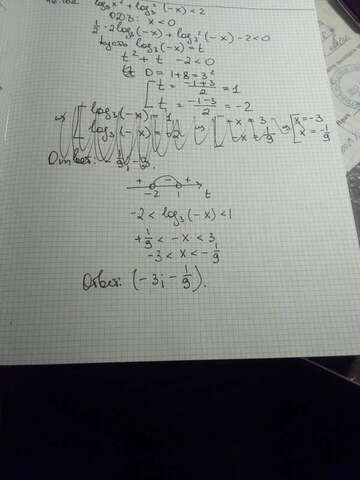 log₉x² + log₃²(-x) < 2
ОДЗ: x < 0
½·2log₃(-x) + log₃²(-x) - 2 < 0
log₃(-x) = t
t² + t - 2 < 0
D = 1 + 8 = 3²
t = (-1+3)/2 = 1
t = (-1-3)/2 = -2
log₃(-x) = 1
log₃(-x) = -2
-x = 3
-x = 1/9
x = -3
x = -1/9
Ответ: 1/9; -3.
+ - +
-2 1 t
-2 < log₃(-x) < 1
+1/9 < -x < 3
-3 < x < -1/9
Ответ: (-3; -1/9).